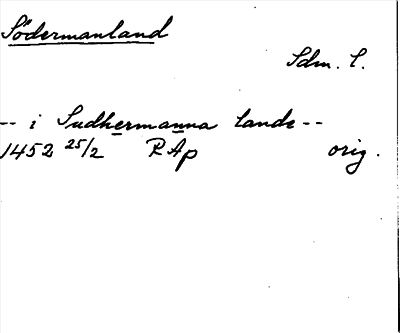 Södermanland
Sdm. l.
-- i Sudhermanna lande --
1452 25/2 RAp orig.